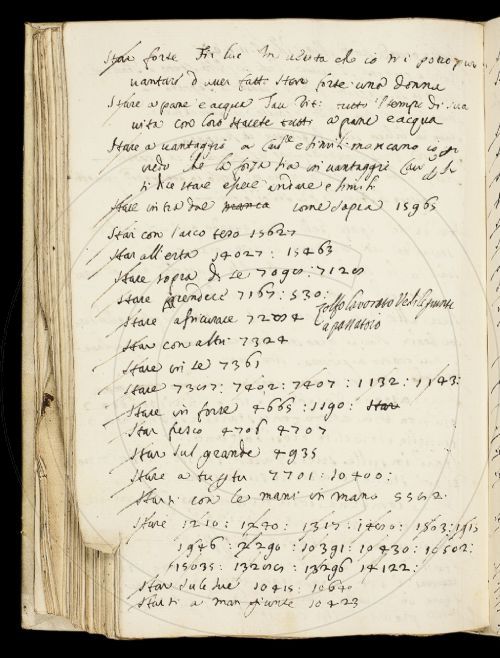 Star forte Tri luc In verita che io mi posso pur
vantare d aver fatt. Star forte una donna
Stare a pane e acqua Sau Vit: tutto il tempo di sua
vita con loro starete tutti a pane e acqua
Stare a vantaggio, o e simili mancano io
vedo che la forza sia in vantaggio
ti Ne stare essere andare e simili
Stare intra due manca come sopra 15965
Star con l'arco teso 15627
Star all'erta 14027: 15463
Stare sopra di se 7090: 7120
Stare prendere 7167: 530:
Stare a ficurare 7204 Zolfo lavorato Vedi
a passatoio
Star con altri 7324
Stare in se 7361
Stare 7397: 7402: 7407: 1132: 1143:
Stare in forse 4665: 1190: Star
Star fresco 4706 4707
Star sul grande 4935
Stare a tu per tu 7701: 10400:
Starsi con le mani in mano 5562:
Stare 1210: 1240: 1317: 1400: 1503: 1915
1946: 2290: 10391: 10430: 10502:
15035: 13209: 13296 14122:
Star sulle sue 10415: 10640
Starsi a man giunte 10423